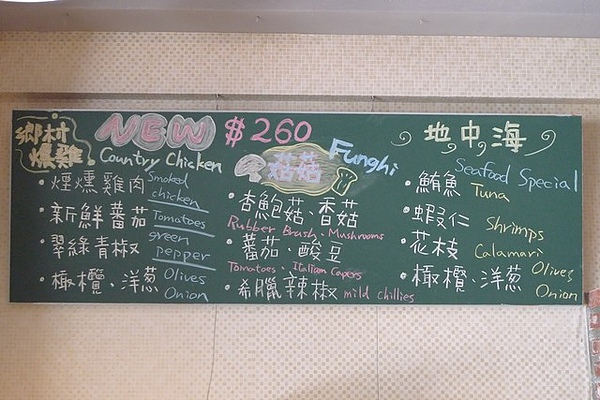 NEW $260
鄉村
燻雞
Country Chicken
• 煙燻雞肉 Smoked chicken
• 新鮮蕃茄 Tomatoes
• 翠綠青椒 green pepper
• 橄欖、洋葱 Olives Onion
菇菇 Funghi
• 杏鮑菇、香菇
Rubber Brush、Mushrooms
• 蕃茄、酸豆
Tomatoes、Italian Capers
• 希臘辣椒 mild chillies
地中海
Seafood Special
• 鮪魚 Tuna
• 蝦仁 Shrimps
• 花枝 Calamari
• 橄欖、洋葱 Olives Onion